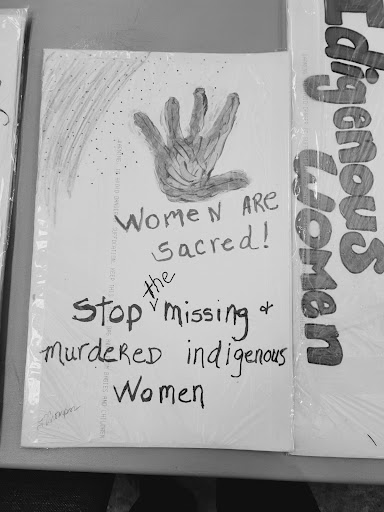 Women ARE
Sacred!
the
Stop missing +
murdeRED indigenous
Women
Edigenous
Women